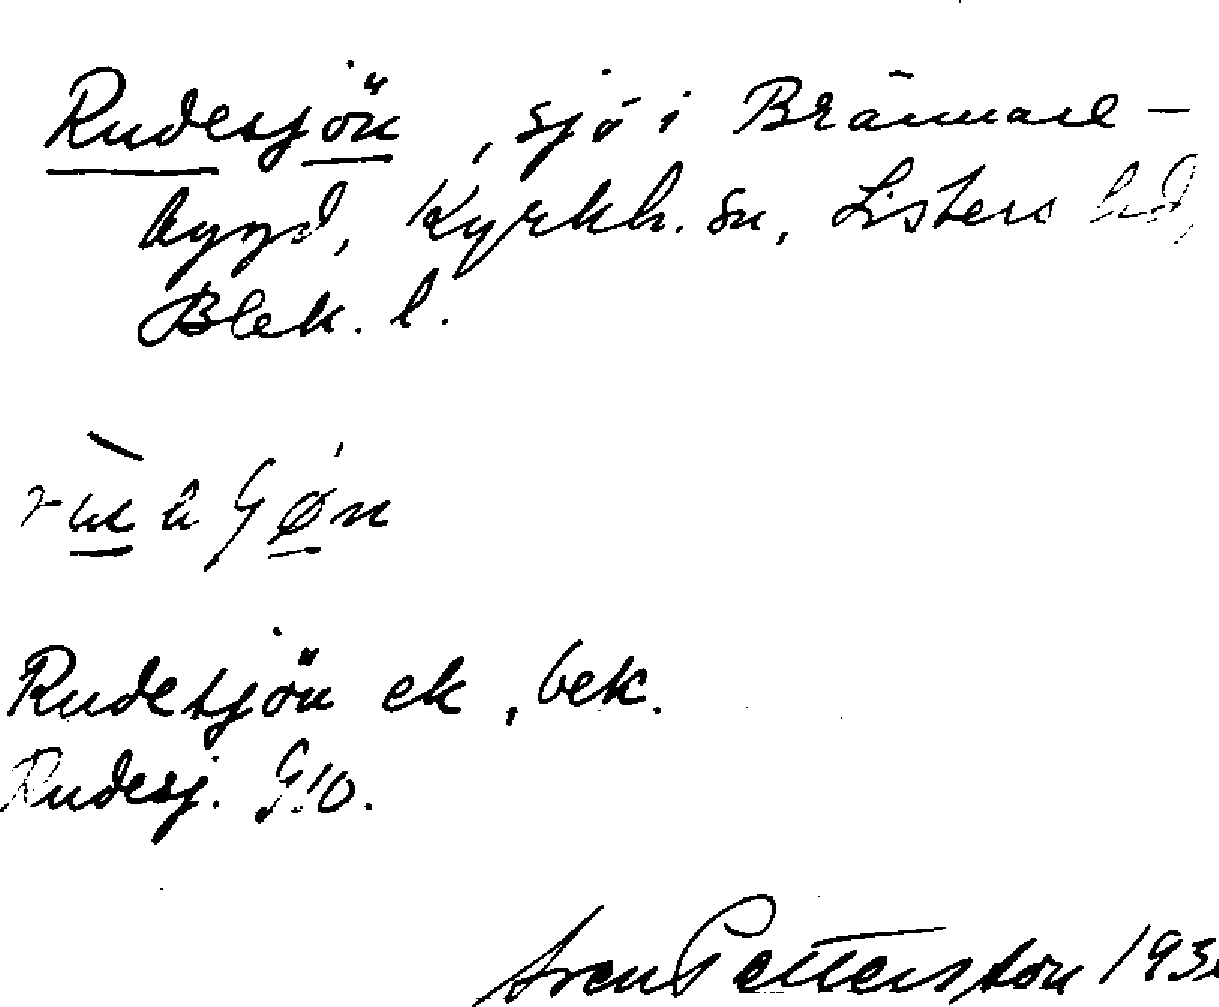 Rudesjön, sjö i Brännare-
bygd, Kyrkh. sn, Listers hd,
Blek. l.
Rudesjön ek, bek.
Rudesj. G10.
Sven Pettersson 193